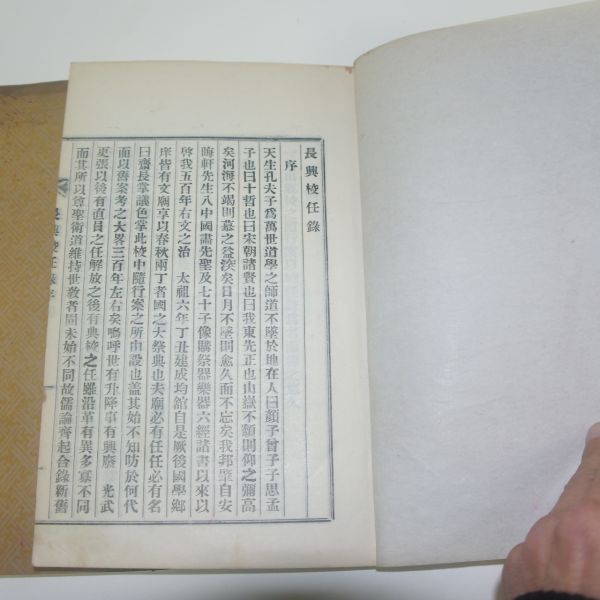 長興校任錄
序
天生孔夫子爲萬世道學之師道不墜於地在人曰顏子曾子子思孟
子也曰十哲也曰宋朝諸賢也曰我東先正也由嶽不頹則仰之彌高
矣河海不竭則慕之益深矣日月不墜則愈久而不忘矣我邦聖自安
晦軒先生入中國畵先聖及七十子像購祭器樂器六經諸書以來以
啓我五百年右文之治 太祖六年丁丑建成均館自是厥後國學鄉
庠皆有文廟享以春秋兩丁者國之大祭典也夫廟必有任任必有名
曰齋長掌議色掌此校中隨行案之所由設也盖其始不知昉於何代
而以舊案考之大畧三百年左右矣嗚呼世有升降事有興廢 光武
更張以後有直員之任解放之後有典校之任雖沿革有異多寡不同
而其所以尊聖衛道維持世敎者固未始不同故儒論齊起合錄新舊
長興校任錄序